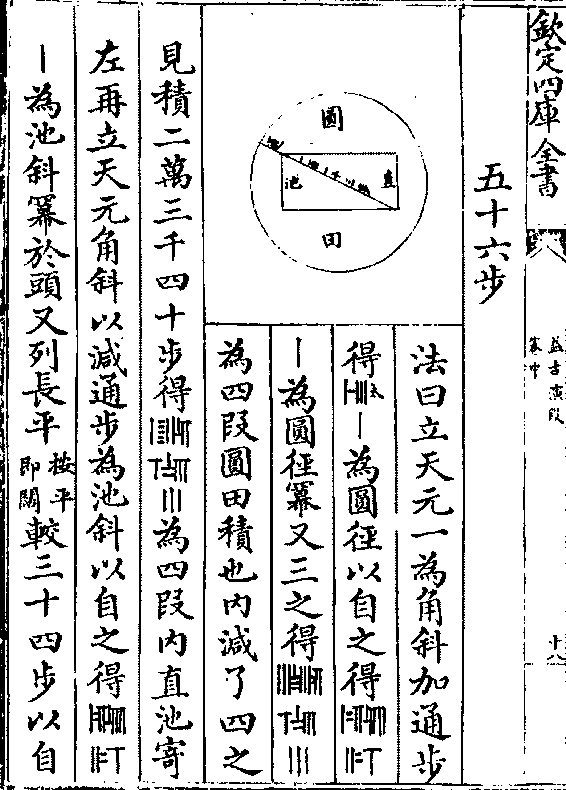 欽定四庫全書
益古演段
卷中
十八
五十六步
圓
直
池
田
法曰立天元一為角斜加通步
得太丨為圓徑以自之得
丨為圓徑冪又三之得
為四段圓田積也内減了四之
見積二萬三千四十步得為四段内直池寄
左再立天元角斜以減通步為池斜以自之得
丨為池斜冪於頭又列長平按平即闊較三十四步以自